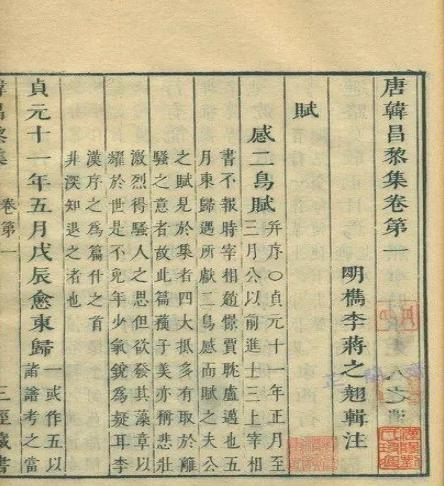 唐韓昌黎集卷第一
明檇李蔣之翹輯注
賦
感二鳥賦
并序○貞元十一年正月至
三月公以前進士三上宰相
書不報時宰相趙憬賈耽盧邁也五
月東歸遇所獻二鳥感而賦之夫公
之賦見於集者四大抵多有取於離
騷之意者故此篇蘓子美亦稱悲壯
激烈得騷人之思但欲發其藻章以
耀於世是不免年少氣銳爲耳李
漢序之爲篇什之首
非深知退之者也
貞元十一年五月戊辰愈東歸
一或作五以
諸譜考之當
韓昌黎集 卷第一 三徑藏書